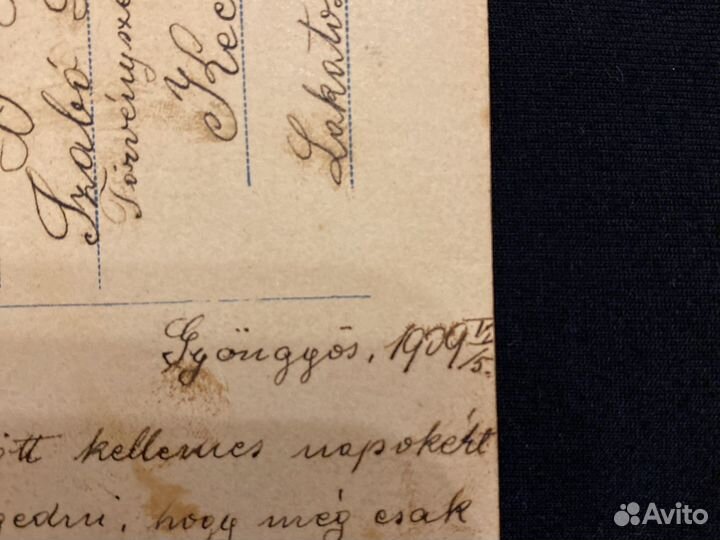 Szabó
Törvénysz
Kec
Lakatos
Gyöngyös, 1909 VI/5.
ött kellemes napokért
gedni, hogy még csak
Avito